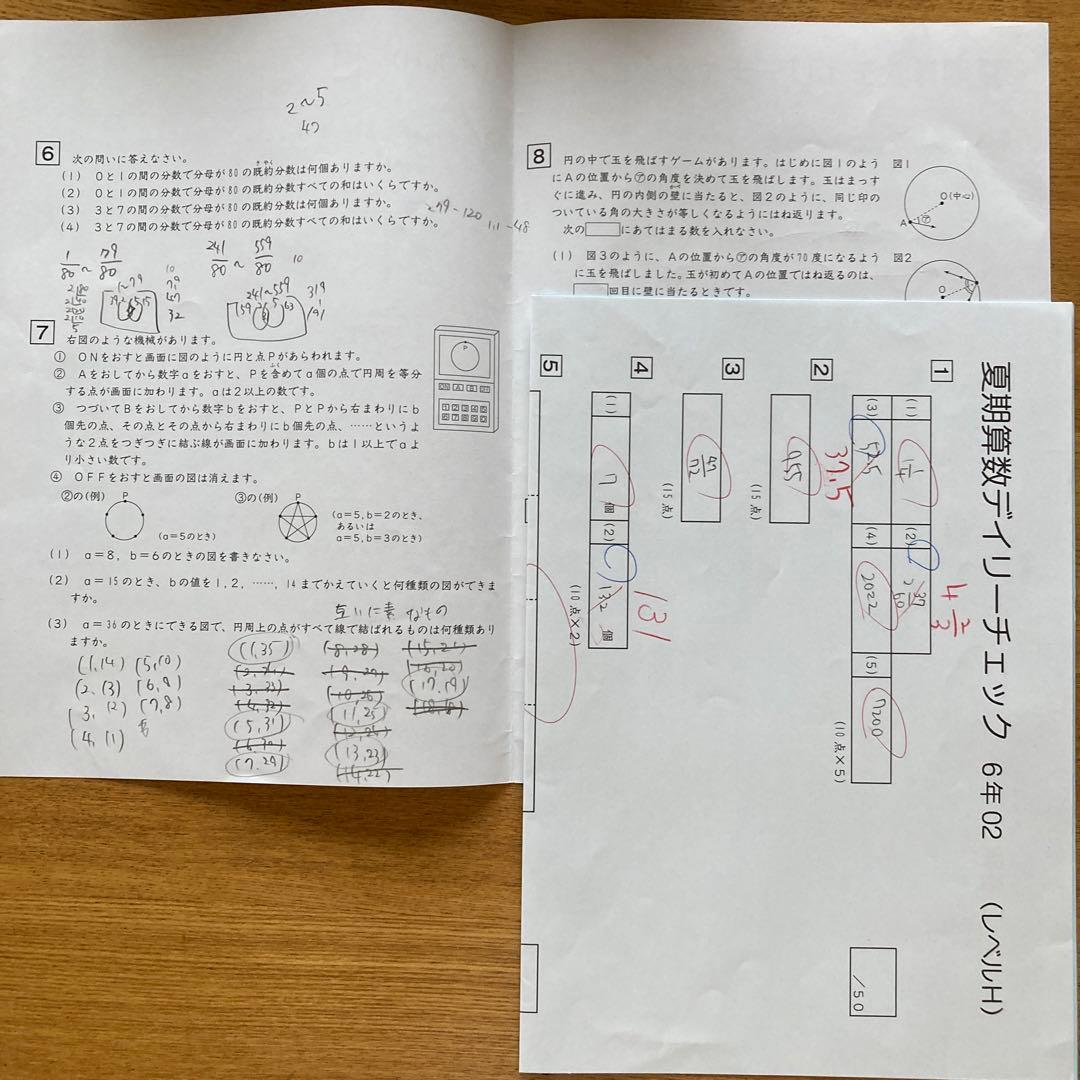 2～5
47
6 次の問いに答えなさい。
(1) 0と1の間の分数で分母が80の既約分数は何個ありますか。
(2) 0と1の間の分数で分母が80の既約分数すべての和はいくらですか。
(3) 3と7の間の分数で分母が80の既約分数は何個ありますか。
(4) 3と7の間の分数で分母が80の既約分数すべての和はいくらですか。
1/80 ～ 79/80
241/80 ～ 559/80
10
241～559
319
191
7 右図のような機械があります。
① ONをおすと画面に図のように円と点Pがあらわれます。
② Aをおしてから数字aをおすと、Pを含めてa個の点で円周を等分
する点が画面に加わります。aは2以上の数です。
③ つづいてBをおしてから数字bをおすと、PとPから右まわりにb
個先の点、その点とその点から右まわりにb個先の点、……というよ
うな2点をつぎつぎに結ぶ線が画面に加わります。bは1以上でaよ
り小さい数です。
④ OFFをおすと画面の図は消えます。
P
ON A B OFF
②の(例) P
(a=5のとき)
③の(例) P
(a=5,b=2のとき、
あるいは
a=5,b=3のとき)
(1) a=8, b=6のときの図を書きなさい。
(2) a=15のとき、bの値を1,2,……,14までかえていくと何種類の図ができま
すか。
互いに素なもの
(3) a=36のときにできる図で、円周上の点がすべて線で結ばれるものは何種類あり
ますか。
(1,14) (5,10)
(2,13) (6,9)
(3,12) (7,8)
(4,11)
(1,35)
(5,31)
(7,29)
(11,25)
(13,23)
(17,19)
8 円の中で玉を飛ばすゲームがあります。はじめに図1のよう
にAの位置から㋐の角度を決めて玉を飛ばします。玉はまっす
ぐに進み、円の内側の壁に当たると、図2のように、同じ印の
ついている角の大きさが等しくなるようにはね返ります。
次の□にあてはまる数を入れなさい。
図1
O(中心)
A
㋐
(1) 図3のように、Aの位置から㋐の角度が70度になるよう
に玉を飛ばしました。玉が初めてAの位置ではね返るのは、
□回目に壁に当たるときです。
図2
O
夏期算数デイリーチェック 6年02 (レベルH)
/50
1
(1) 1/14
(2)
4 2/3
(3) 52.5
37.5
(4) 2022
(5) 7200
(10点×5)
2
955
(15点)
3
47/72
(15点)
4
(1) 7個
(2) 132個
131
(10点×2)
5